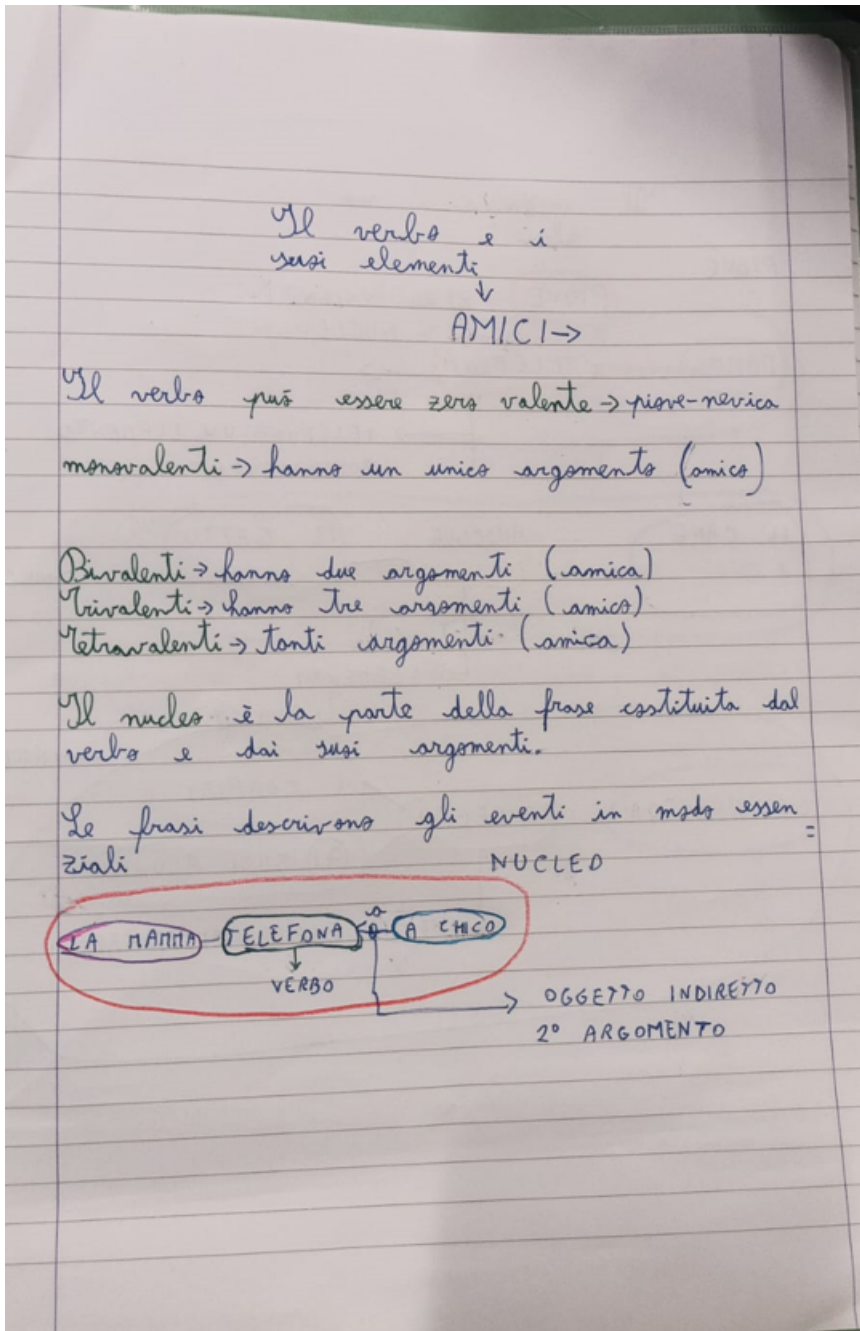 Il verbo e i
suoi elementi
↓
AMICI→
Il verbo può essere zero valente → piove-nevica
monovalenti → hanno un unico argomento (amico)
Bivalenti → hanno due argomenti (amica)
Trivalenti → hanno tre argomenti (amico)
Tetravalenti → tanti argomenti (amica)
Il nucleo è la parte della frase costituita dal
verbo e dai suoi argomenti.
Le frasi descrivono gli eventi in modo essen=
ziali NUCLEO
LA MAMMA TELEFONA A CHICO
VERBO
OGGETTO INDIRETTO
2° ARGOMENTO